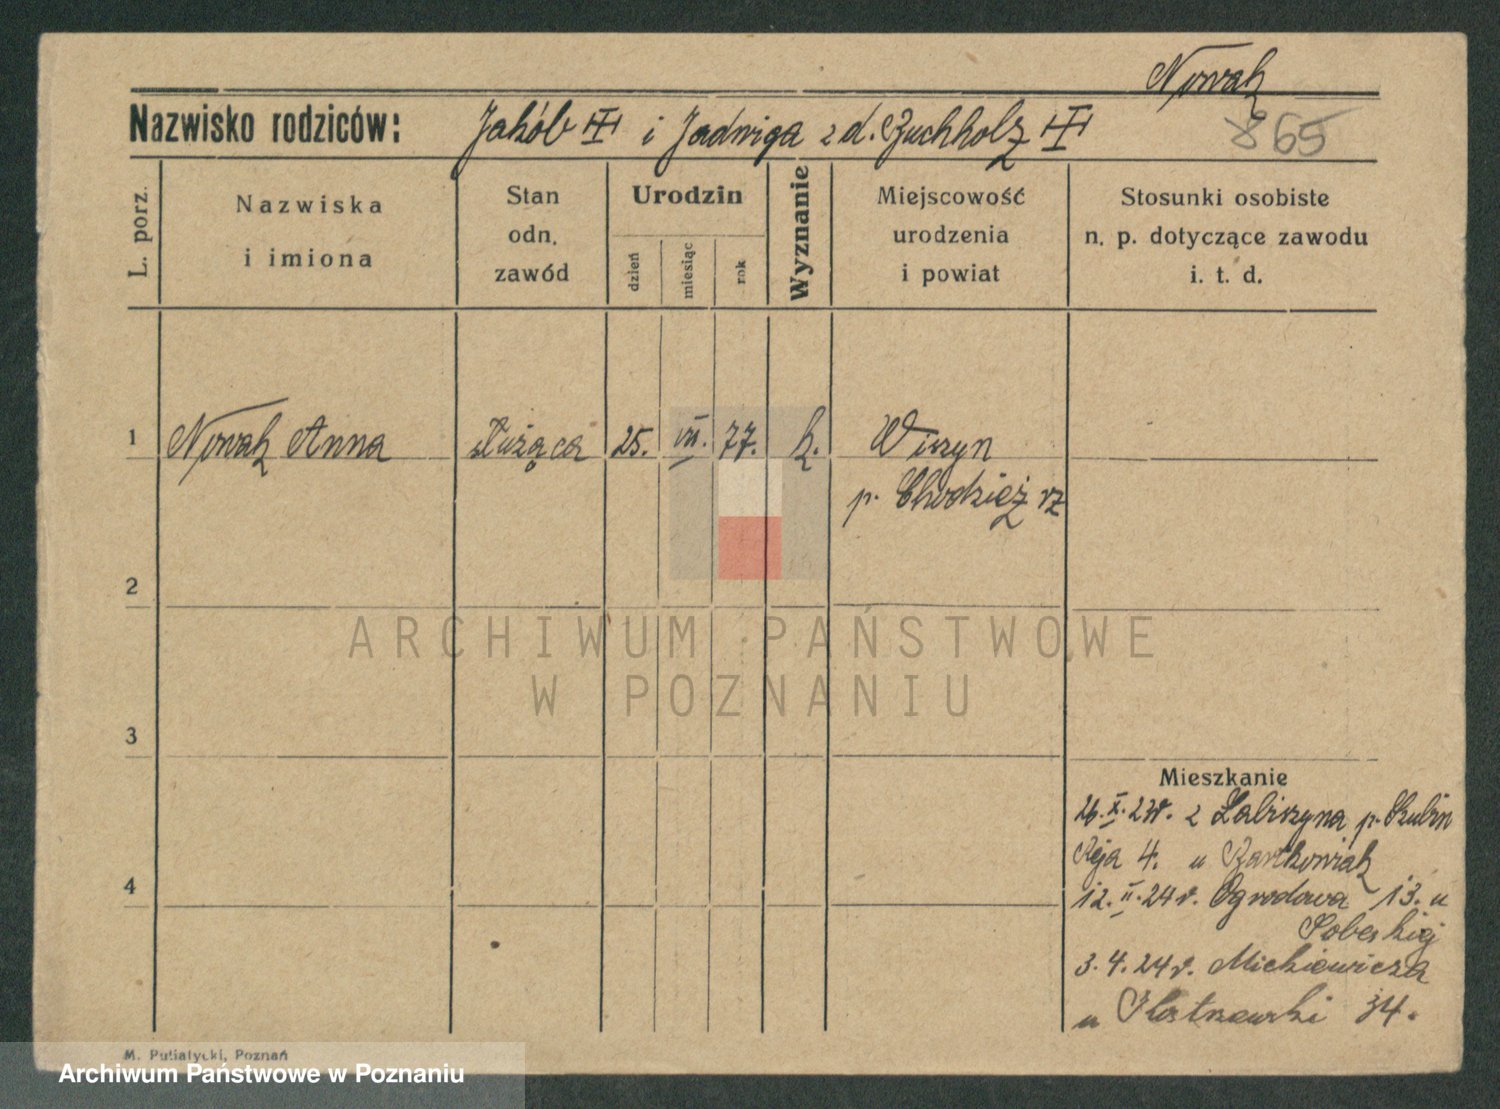 Nowak
Nazwisko rodziców: Jakób i Jadwiga z d. Buchholz
865
L. porz.
Nazwiska
i imiona
Stan
odn.
zawód
Urodzin
dzień
miesiąc
rok
Wyznanie
Miejscowość
urodzenia
i powiat
Stosunki osobiste
n. p. dotyczące zawodu
i. t. d.
1 Nowak Anna służąca 25. VII. 77. k. Wiszyn
p. Chodzież
2
ARCHIWUM PAŃSTWOWE
W POZNANIU
3
Mieszkanie
26. X. z Łabiszyna p. Szubin
4
Reja 4. u Bartkowiak
12. II. 24 r. Ogrodowa 13. u
Sobeskiej
3. 4. 24 r. Mickiewicza
u 34.
M. Putiatycki, Poznań
Archiwum Państwowe w Poznaniu